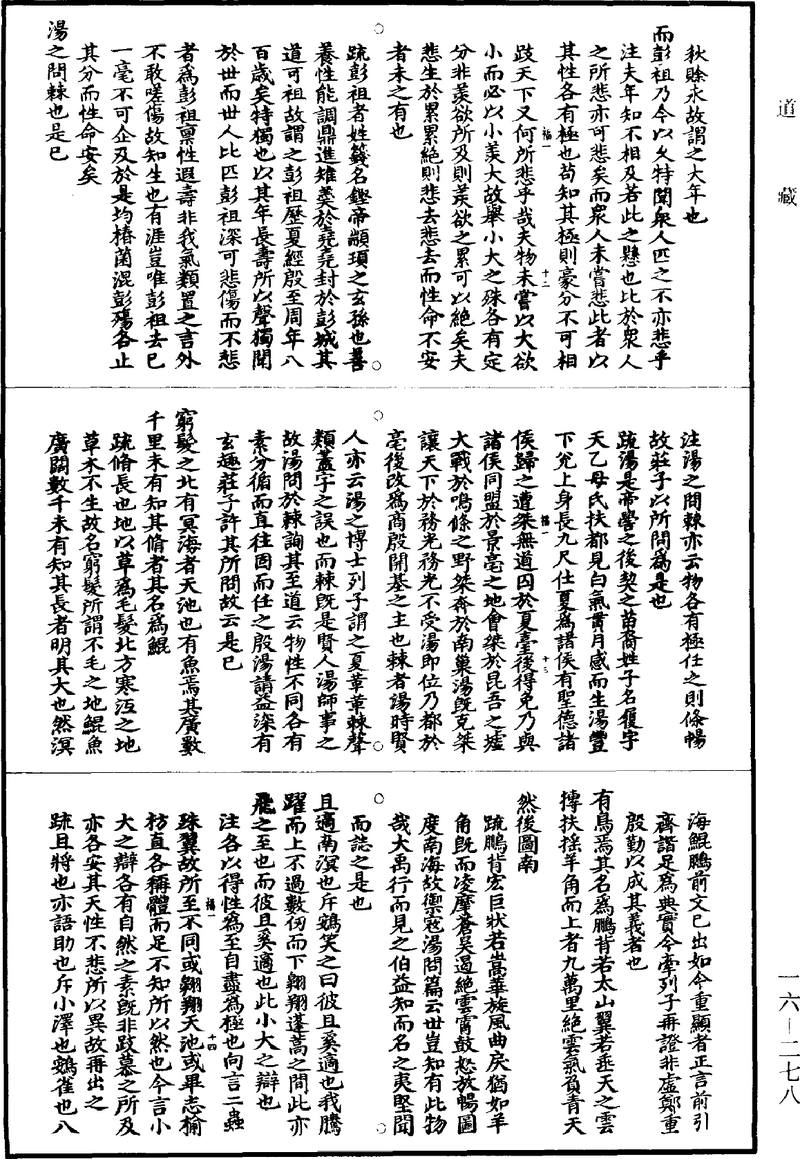 道藏
秋賒永故謂之大年也
而彭祖乃今以乆特聞衆人匹之不亦悲乎
注夫年知不相及若此之懸也比於衆人
之所悲亦可悲矣而衆人未嘗悲此者以
其性各有極也苟知其極則豪分不可相
跂天下又何所悲乎哉夫物未嘗以大欲
小而必以小羡大故舉小大之殊各有定
分非羡欲所及則羡欲之累可以絶矣夫
悲生於累累絶則悲去悲去而性命不安
者未之有也
疏彭祖者姓籛名鏗帝顓頊之玄孫也善
養性能調鼎進雉羹於堯堯封於彭城其
道可祖故謂之彭祖歷夏經殷至周年八
百歲矣特獨也以其年長壽所以聲獨聞
於世而世人比匹彭祖深可悲傷而不悲
者爲彭祖禀性遐壽非我氣類置之言外
不敢嗟傷故知生也有涯豈唯彭祖去已
一毫不可企及於是均椿菌混彭殤各止
其分而性命安矣
湯之問棘也是已
注湯之問棘亦云物各有極任之則條暢
故莊子以所問爲是也
疏湯是帝嚳之後契之苗裔姓子名履字
天乙母氏扶都見白氣貫月感而生湯豐
下兊上身長九尺仕夏爲諸侯有聖德諸
侯歸之遭桀無道囚於夏臺後得免乃與
諸侯同盟於景亳之地會桀於昆吾之墟
大戰於鳴條之野桀奔於南巢湯旣克桀
讓天下於務光務光不受湯即位乃都於
亳後改爲商殷開基之主也棘者湯時賢
人亦云湯之博士列子謂之夏革革棘聲
類蓋字之誤也而棘旣是賢人湯師事之
故湯問於棘詢其至道云物性不同各有
素分循而直往因而任之殷湯請益深有
玄趣莊子許其所問故云是已
窮髮之北有冥海者天池也有魚焉其廣數
千里未有知其脩者其名爲鯤
疏脩長也地以草爲毛髮北方寒沍之地
草木不生故名窮髮所謂不毛之地鯤魚
廣闊數千未有知其長者明其大也然溟
海鯤鵬前文已出如今重顯者正言前引
齊諧足爲典實今牽列子再證非虚鄭重
殷勤以成其義者也
有鳥焉其名爲鵬背若太山翼若垂天之雲
摶扶揺羊角而上者九萬里絶雲氣負青天
然後圖南
疏鵬背宏巨狀若嵩華旋風曲戾猶如羊
角旣而凌摩蒼昊遏絶雲霄鼓怒放暢圖
度南海故禦寇湯問篇云世豈知有此物
哉大禹行而見之伯益知而名之夷堅聞
而誌之是也
且適南溟也斥鴳笑之曰彼且奚適也我騰
躍而上不過數仞而下翺翔蓬蒿之間此亦
飛之至也而彼且奚適也此小大之辯也
注各以得性爲至自盡爲極也向言二蟲
殊翼故所至不同或翺翔天池或畢志榆
枋直各稱體而足不知所以然也今言小
大之辯各有自然之素旣非跂慕之所及
亦各安其天性不悲所以異故再出之
疏且將也亦語助也斥小澤也鴳雀也八
福一
十二
福一
十三
福一
十四
一六—二七八